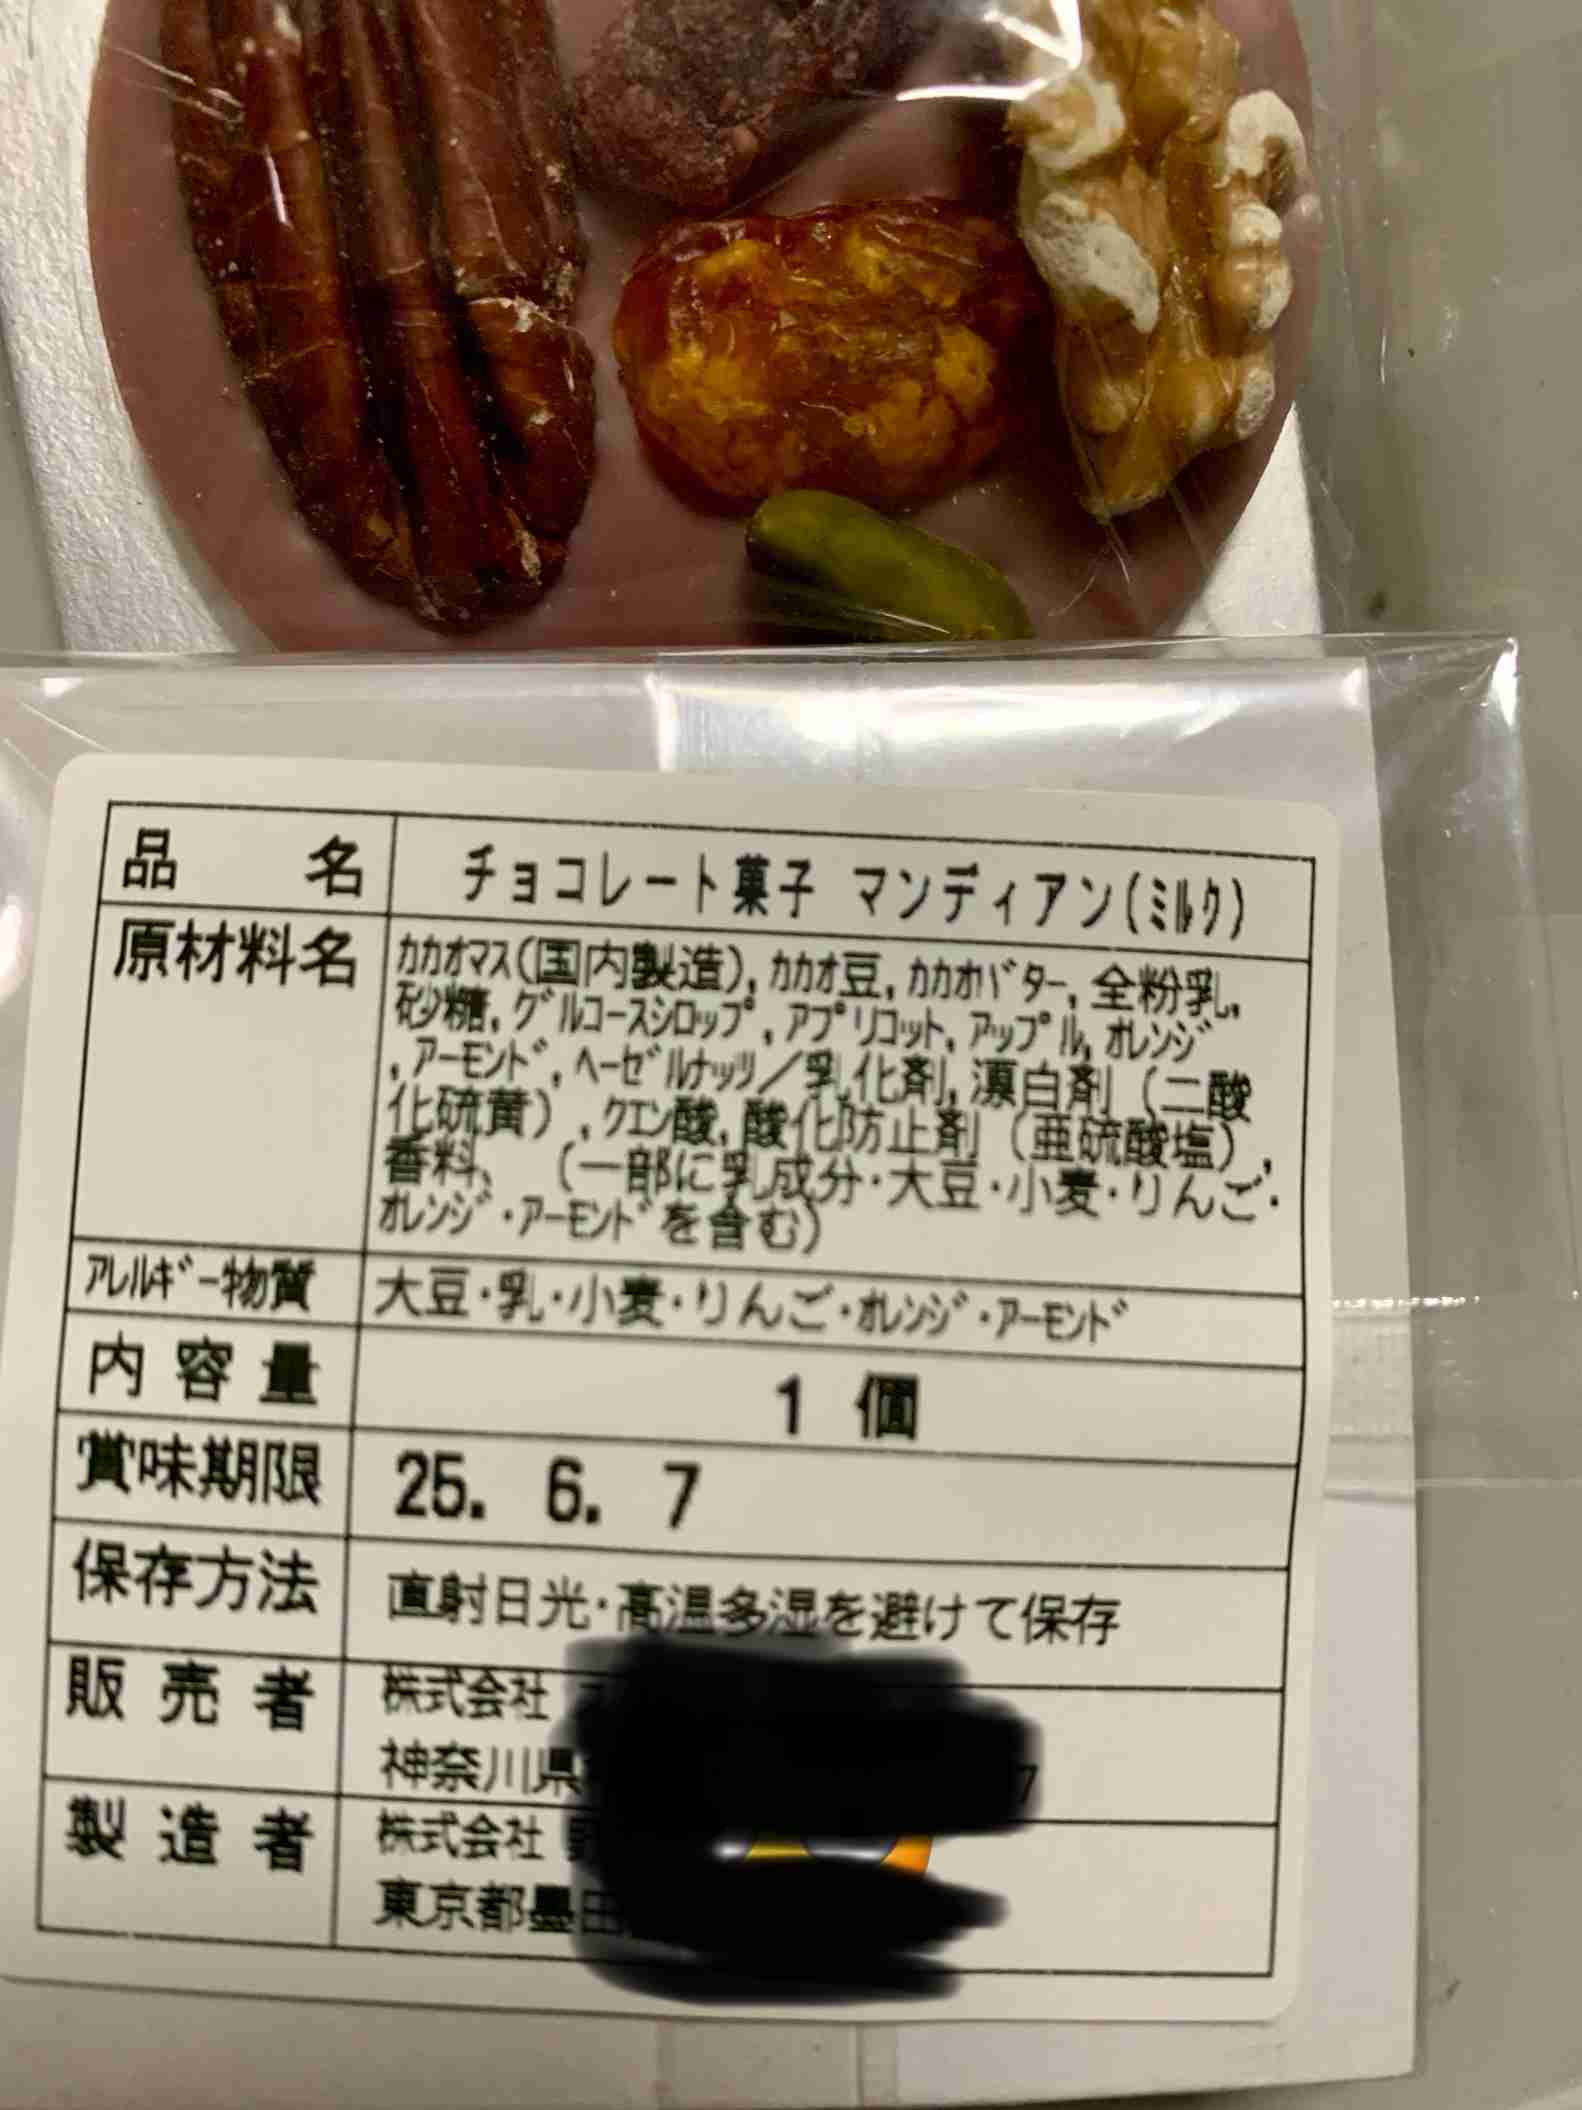 品名 チョコレート菓子 マンディアン(ミルク)
原材料名 カカオマス(国内製造), カカオ豆, カカオバター, 全粉乳,
砂糖, グルコースシロップ, アプリコット, アップル, オレンジ
, アーモンド, ヘーゼルナッツ／乳化剤, 漂白剤 (二酸
化硫黄) , クエン酸, 酸化防止剤 (亜硫酸塩) ,
香料、 (一部に乳成分・大豆・小麦・りんご・
オレンジ・アーモンドを含む)
アレルギー物質 大豆・乳・小麦・りんご・オレンジ・アーモンド
内容量 1 個
賞味期限 25. 6. 7
保存方法 直射日光・高温多湿を避けて保存
販売者 株式会社
神奈川県 7
製造者 株式会社
東京都墨田